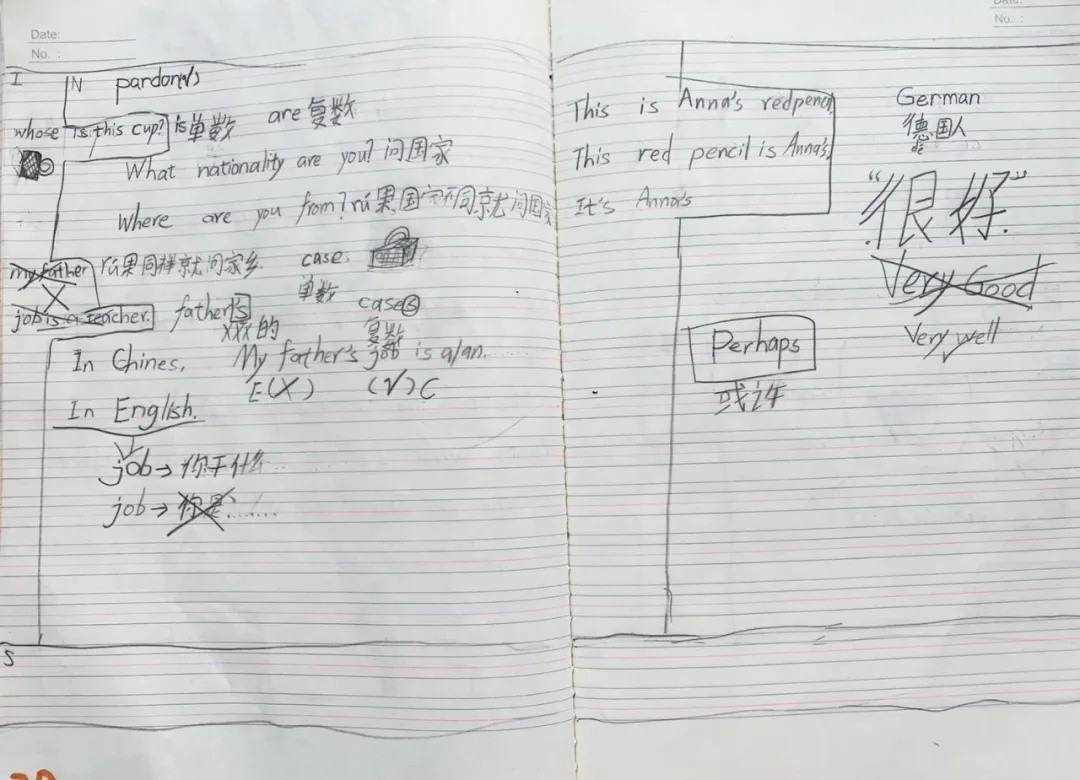 Date:
No. :
I
N pardon(v)
whose is this cup? is单数 are复数
What nationality are you? 问国家
Where are you from? 如果国家不同就问国家
my father 如果同样就问家乡. case.
单数 cases
复数
job is a teacher. father's
XXX的
In Chines, My father's job is a/an......
E(X) (√)C
In English.
job→你干什么...
job→你是.......
S
Date:
No. :
This is Anna's redpencil
This red pencil is Anna's,
It's Anna's
German
德国人
de
"很好"
Very Good
Very well
Perhaps
或许